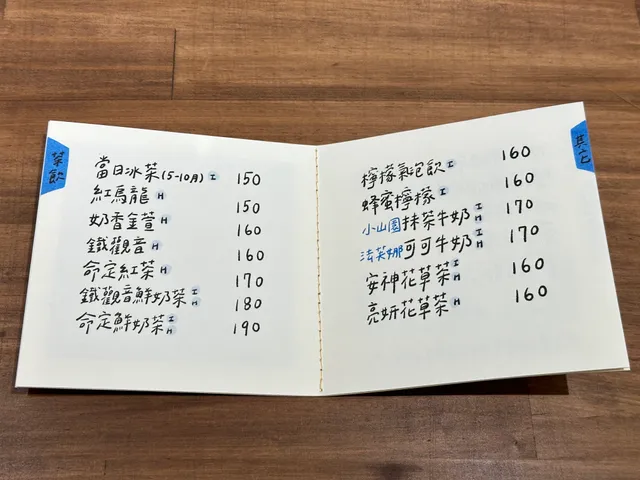 茶飲
當日冰茶(5-10月) I 150
紅烏龍 H 150
奶香金萱 H 160
鐵觀音 H 160
命定紅茶 H 170
鐵觀音鮮奶茶 I H 180
命定鮮奶茶 I H 190
其它
檸檬氣泡飲 I 160
蜂蜜檸檬 I 160
小山園抹茶牛奶 I H 170
法芙娜可可牛奶 I H 170
安神花草茶 H 160
亮妍花草茶 H 160